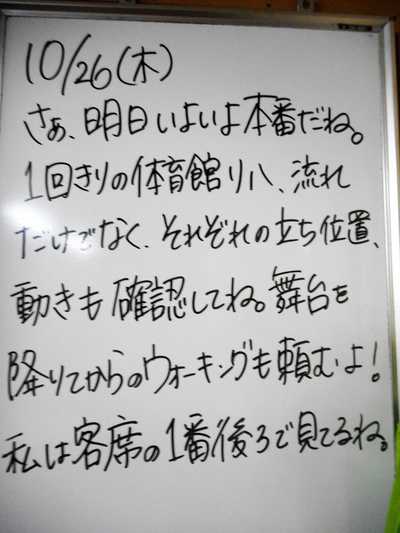 10/26(木)
さぁ、明日いよいよ本番だね。
1回きりの体育館リハ、流れ
だけでなく、それぞれの立ち位置、
動きも確認してね。舞台を
降りてからのウォーキングも頼むよ!
私は客席の1番後ろで見てるね。